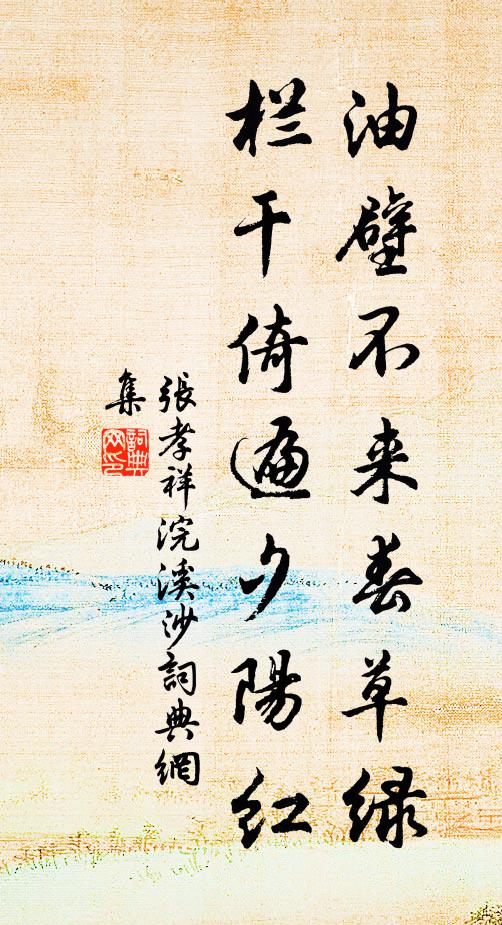 油壁不来春草绿
栏干倚遍夕陽红
張孝祥浣溪沙詞典網
集
詞典網印